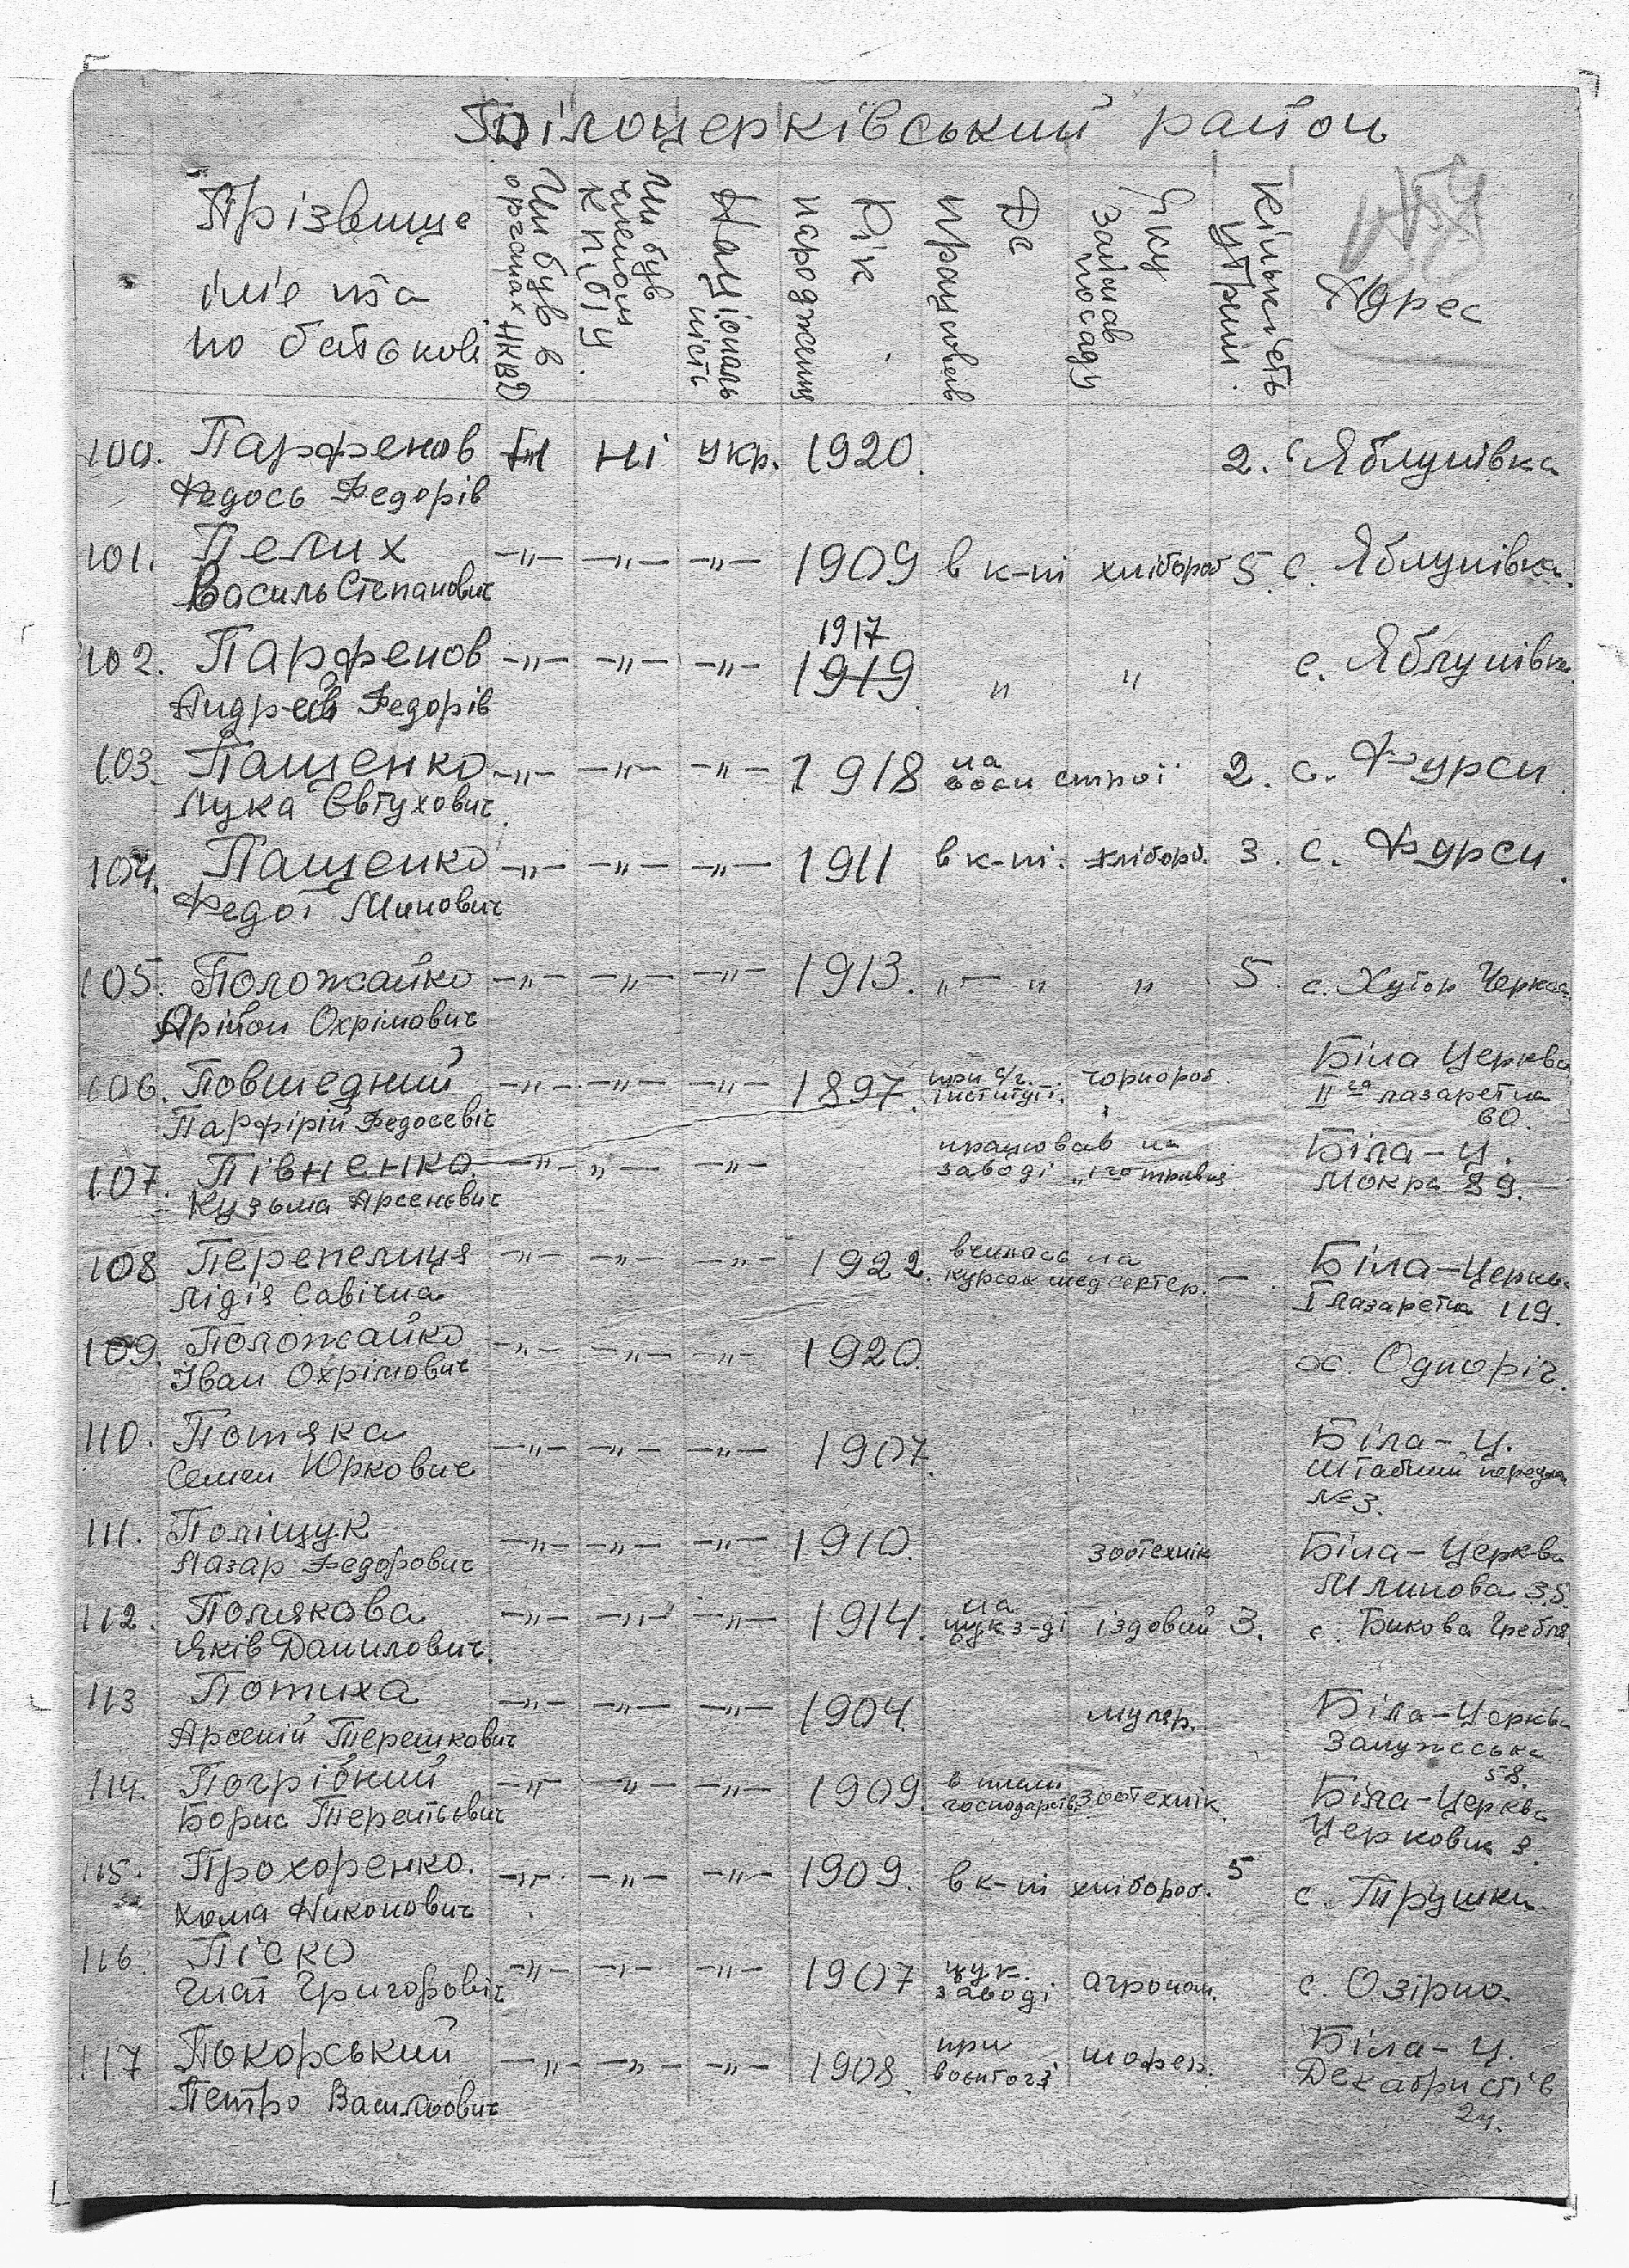 Білоцерківський район
Прізвище
імʼе та
по батькові
Чи був в
органах НКВД
Чи був
членом
КП(б)У
Національ
ність
Рік
народження
Де
працював
Яку
займав
посаду
Кількість
утрим.
Адрес
100. Парфенов Ні Ні укр. 1920. 2. с Яблунівка
Федось Федорів
101. Пелих -〃- -〃- -〃- 1909 в к-пі хлібороб 5 с. Яблунівка.
Василь Степанович
1917
102. Парфенов -〃- -〃- -〃- 1919 〃 〃 с. Яблунівка
Андрей Федорів
103. Пащенко -〃- -〃- -〃- 1918 на строї 2. с. Фурси
Лука Євтухович
104. Пащенко -〃- -〃- -〃- 1911 в к-пі. хлібороб. 3. с. Фурси.
Федот Минович
105. Положайко -〃- -〃- -〃- 1913. 〃-〃 〃 5. с. Хутор Черкас
Охрімович
106. Повшедний -〃- -〃- -〃- 1897. при с/г. чорнороб. Біла Церква
інституті. ІІга лазаретна
Парфірій Федосевіч 60.
107. Півненко -〃- 〃- -〃- працював на Біла-Ц.
заводі „1го травня Мокра 39.
Кузьма Арсеньвич
108 Перепелиця -〃- -〃- -〃- 1922. вчилась на - Біла-Церкв.
курсах медсестер. І Лазаретна 119.
Лідія Савічна
109. Положайко -〃- -〃- -〃- 1920. х. Одноріг.
Іван Охрімович
110. Потяка -〃- -〃- -〃- 1907. Біла-Ц.
Семен Юркович Штабний
№3.
111. Поліщук -〃- -〃- -〃- 1910. зоотехнік Біла-Церква
Лазар Федорович Млинова 35.
112. Полякова -〃- -〃- -〃- 1914. на
цук з-ді їздовий 3. с. Бикова Гребля
Яків Данилович.
113 Потиха -〃- -〃- -〃- 1904. муляр. Біла-Церкв.
Арсеній Терешкович
58.
114. Погрібний -〃- -〃- -〃- 1909. в плем
господарств. зоотехнік. Біла-Церква
Борис Терентьович Церковна 3.
115. Прохоренко. -〃- -〃- -〃- 1909. в к-пі хлібороб. 5 с. Трушки.
Хома Никонович
116. Піско -〃- -〃- -〃- 1907 цук.
заводі агроном. с. Озірно.
Гнат Григорович
117 Покорський -〃- -〃- -〃- 1908. при шофер. Біла-Ц.
Декабристів
Петро Васильович 24.